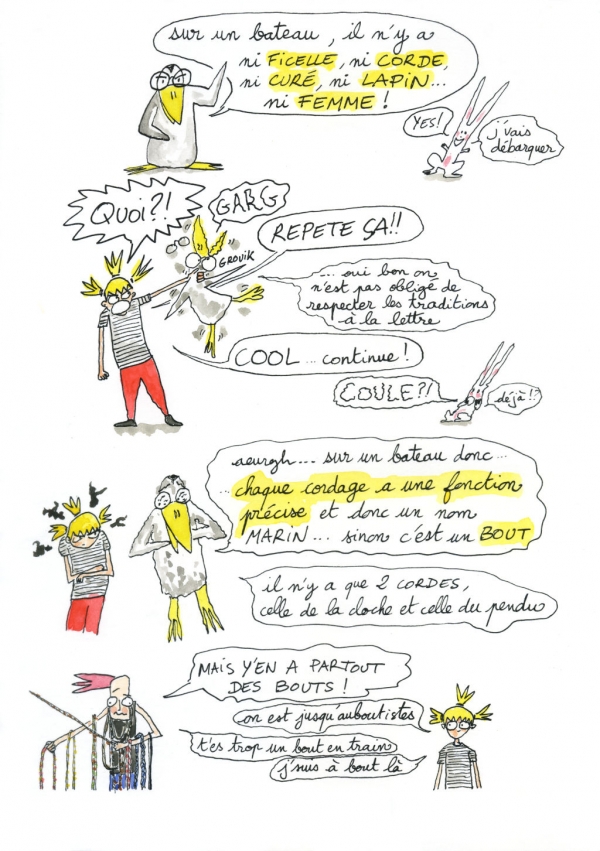 sur un bateau, il n'y a
ni FICELLE, ni CORDE,
ni CURÉ, ni LAPIN...
ni FEMME !
YES!
j'vais
débarquer
QUOI?!
GARG
GROUIK
REPETE ÇA!!
... oui bon on
n'est pas obligé de
respecter les traditions
à la lettre
COOL ... continue !
COULE?!
déjà !?
aeurgh... sur un bateau donc ...
... chaque cordage a une fonction
précise et donc un nom
MARIN ... sinon c'est un BOUT
il n'y a que 2 CORDES,
celle de la cloche et celle du pendu
MAIS Y'EN A PARTOUT
DES BOUTS !
on est jusqu'auboutistes
t'es trop un bout en train
j'suis à bout là